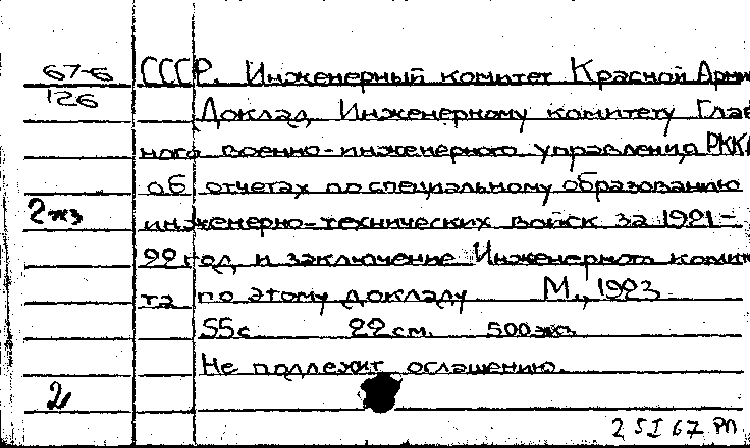 67-6
126
СССР. Инженерный комитет Красной Арми
Доклад Инженерному комитету Глав
ного военно-инженерного управления РККА
об отчетах по специальному образованию
2 экз
инженерно-технических войск за 1921-
22 год, и заключение Инженерного коми
та по этому докладу М., 1923
55 с 22 см. 500 экз.
Не подлежит оглашению.
2
2 5 I 67 РП